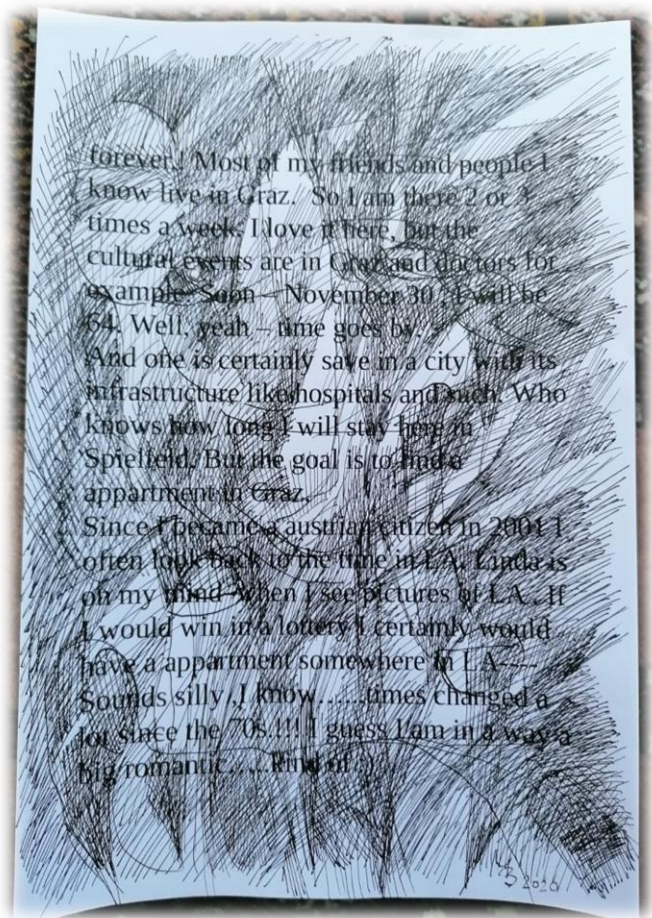 forever.! Most of my friends and people I
know live in Graz. So I am there 2 or 3
times a week. I love it here, but the
cultural events are in Graz and doctors for
example. Soon – November 30 , I will be
64. Well, yeah – time goes by.
And one is certainly save in a city with its
infrastructure like hospitals and such. Who
knows how long I will stay here in
Spielfeld. But the goal is to find a
appartment in Graz.
Since I became a austrian citizen in 2001 I
often look back to the time in LA. Linda is
on my mind when I see pictures of LA . If
I would win in a lottery I certainly would
have a appartment somewhere in LA----
Sounds silly ,I know......times changed a
lot since the 70s.!!! I guess I am in a way a
big romantic......kind of :)
2020